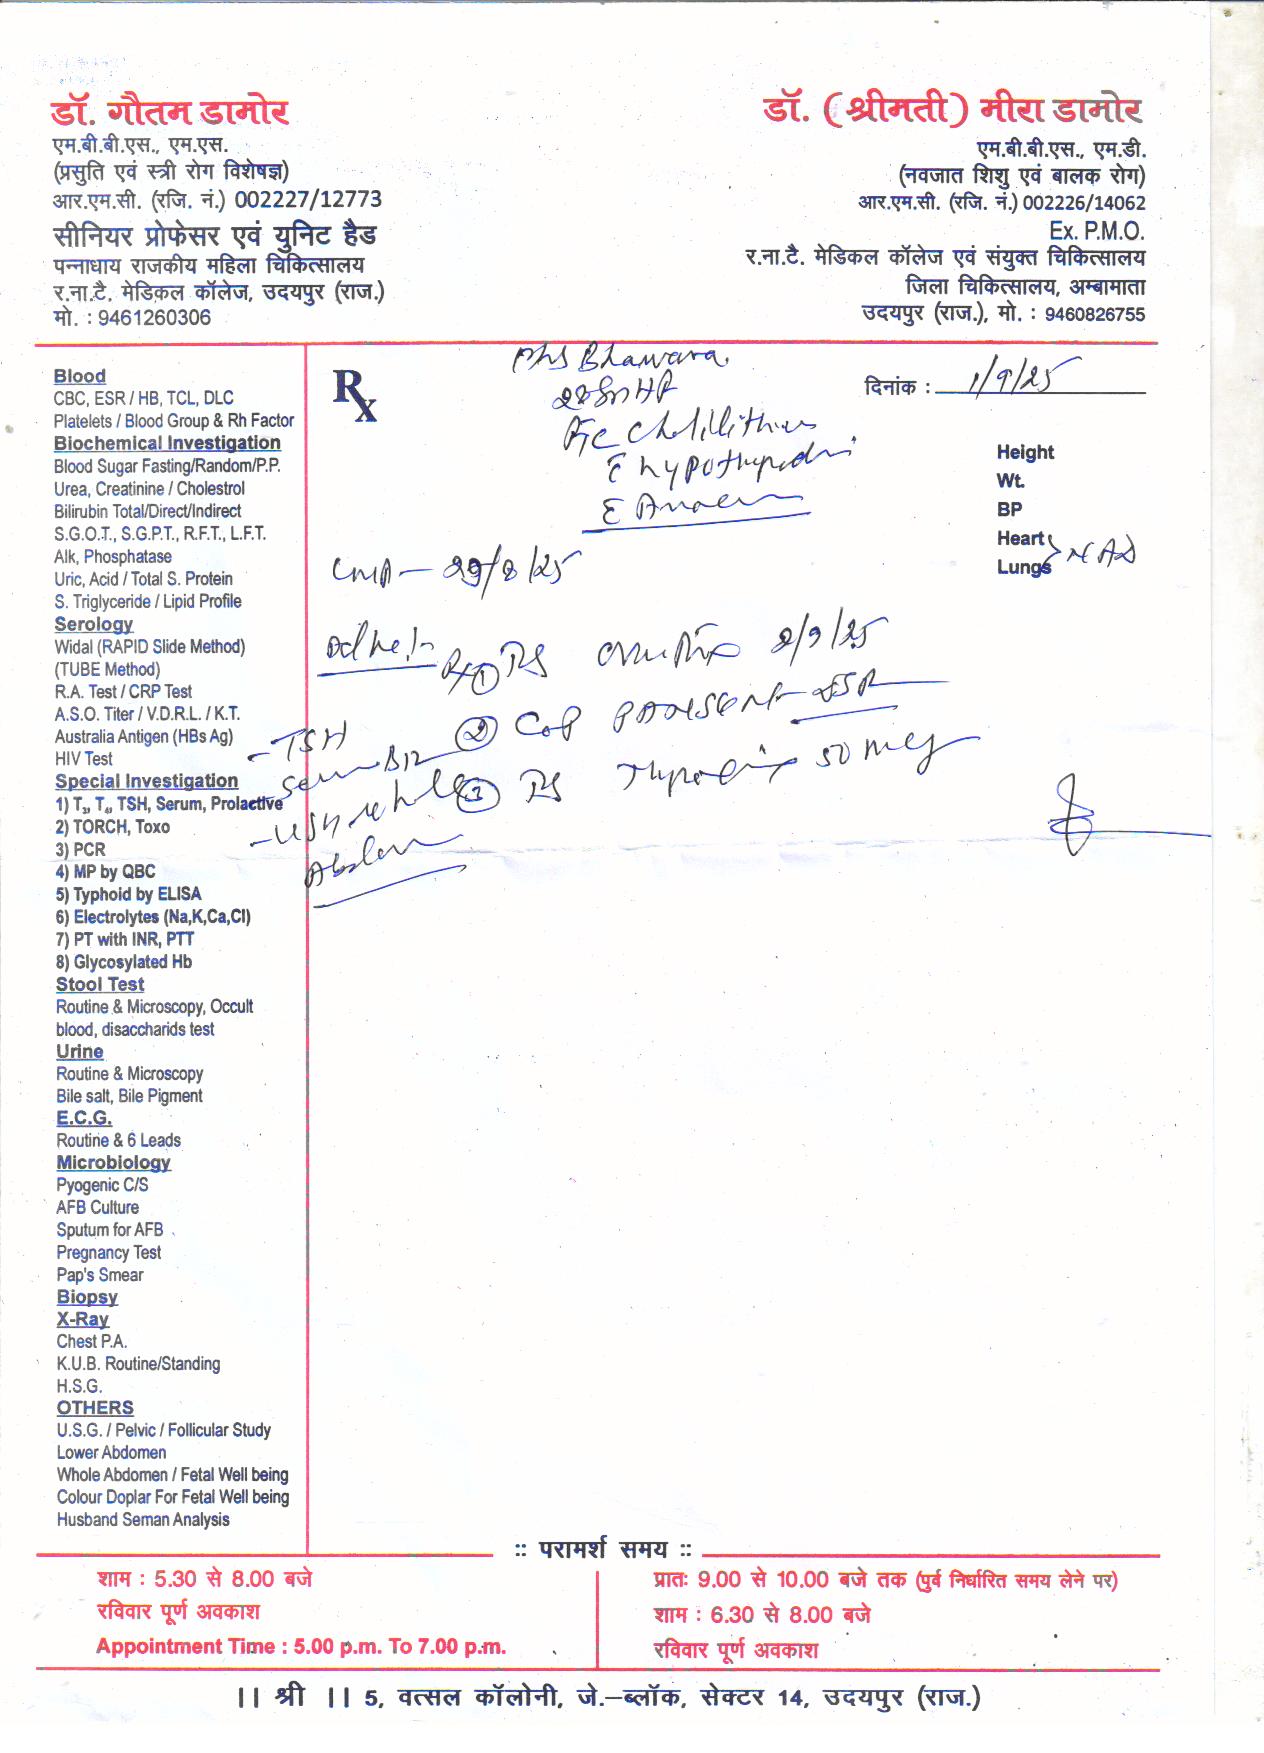 डॉ. गौतम डामोर
एम.बी.बी.एस., एम.एस.
(प्रसुति एवं स्त्री रोग विशेषज्ञ)
आर.एम.सी. (रजि. नं.) 002227/12773
सीनियर प्रोफेसर एवं युनिट हैड
पन्नाधाय राजकीय महिला चिकित्सालय
र.ना.टै. मेडिकल कॉलेज, उदयपुर (राज.)
मो. : 9461260306
डॉ. (श्रीमती) मीरा डामोर
एम.बी.बी.एस., एम.डी.
(नवजात शिशु एवं बालक रोग)
आर.एम.सी. (रजि. नं.) 002226/14062
Ex. P.M.O.
र.ना.टै. मेडिकल कॉलेज एवं संयुक्त चिकित्सालय
जिला चिकित्सालय, अम्बामाता
उदयपुर (राज.), मो. : 9460826755
Blood
CBC, ESR / HB, TCL, DLC
Platelets / Blood Group & Rh Factor
Biochemical Investigation
Blood Sugar Fasting/Random/P.P.
Urea, Creatinine / Cholestrol
Bilirubin Total/Direct/Indirect
S.G.O.T., S.G.P.T., R.F.T., L.F.T.
Alk, Phosphatase
Uric, Acid / Total S. Protein
S. Triglyceride / Lipid Profile
Serology
Widal (RAPID Slide Method)
(TUBE Method)
R.A. Test / CRP Test
A.S.O. Titer / V.D.R.L. / K.T.
Australia Antigen (HBs Ag)
HIV Test
Special Investigation
1) T₃, T₄, TSH, Serum, Prolactive
2) TORCH, Toxo
3) PCR
4) MP by QBC
5) Typhoid by ELISA
6) Electrolytes (Na,K,Ca,Cl)
7) PT with INR, PTT
8) Glycosylated Hb
Stool Test
Routine & Microscopy, Occult
blood, disaccharids test
Urine
Routine & Microscopy
Bile salt, Bile Pigment
E.C.G.
Routine & 6 Leads
Microbiology
Pyogenic C/S
AFB Culture
Sputum for AFB
Pregnancy Test
Pap's Smear
Biopsy
X-Ray
Chest P.A.
K.U.B. Routine/Standing
H.S.G.
OTHERS
U.S.G. / Pelvic / Follicular Study
Lower Abdomen
Whole Abdomen / Fetal Well being
Colour Doplar For Fetal Well being
Husband Seman Analysis
Rx
Bhawara
दिनांक : 1/9/25
Height
Wt.
BP
Heart
Lungs NAD
LMP - 29/8/25
① 2/9/25
② Cap DSR
③ 50 mcg
- TSH
Serum B12
- USG whole
Abdomen
:: परामर्श समय ::
शाम : 5.30 से 8.00 बजे
रविवार पूर्ण अवकाश
Appointment Time : 5.00 p.m. To 7.00 p.m.
प्रातः 9.00 से 10.00 बजे तक (पुर्व निर्धारित समय लेने पर)
शाम : 6.30 से 8.00 बजे
रविवार पूर्ण अवकाश
|| श्री || 5, वत्सल कॉलोनी, जे.–ब्लॉक, सेक्टर 14, उदयपुर (राज.)